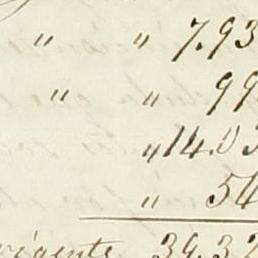 " " 7.93
" " 99
" 14.03
" 54
vigente 39.32